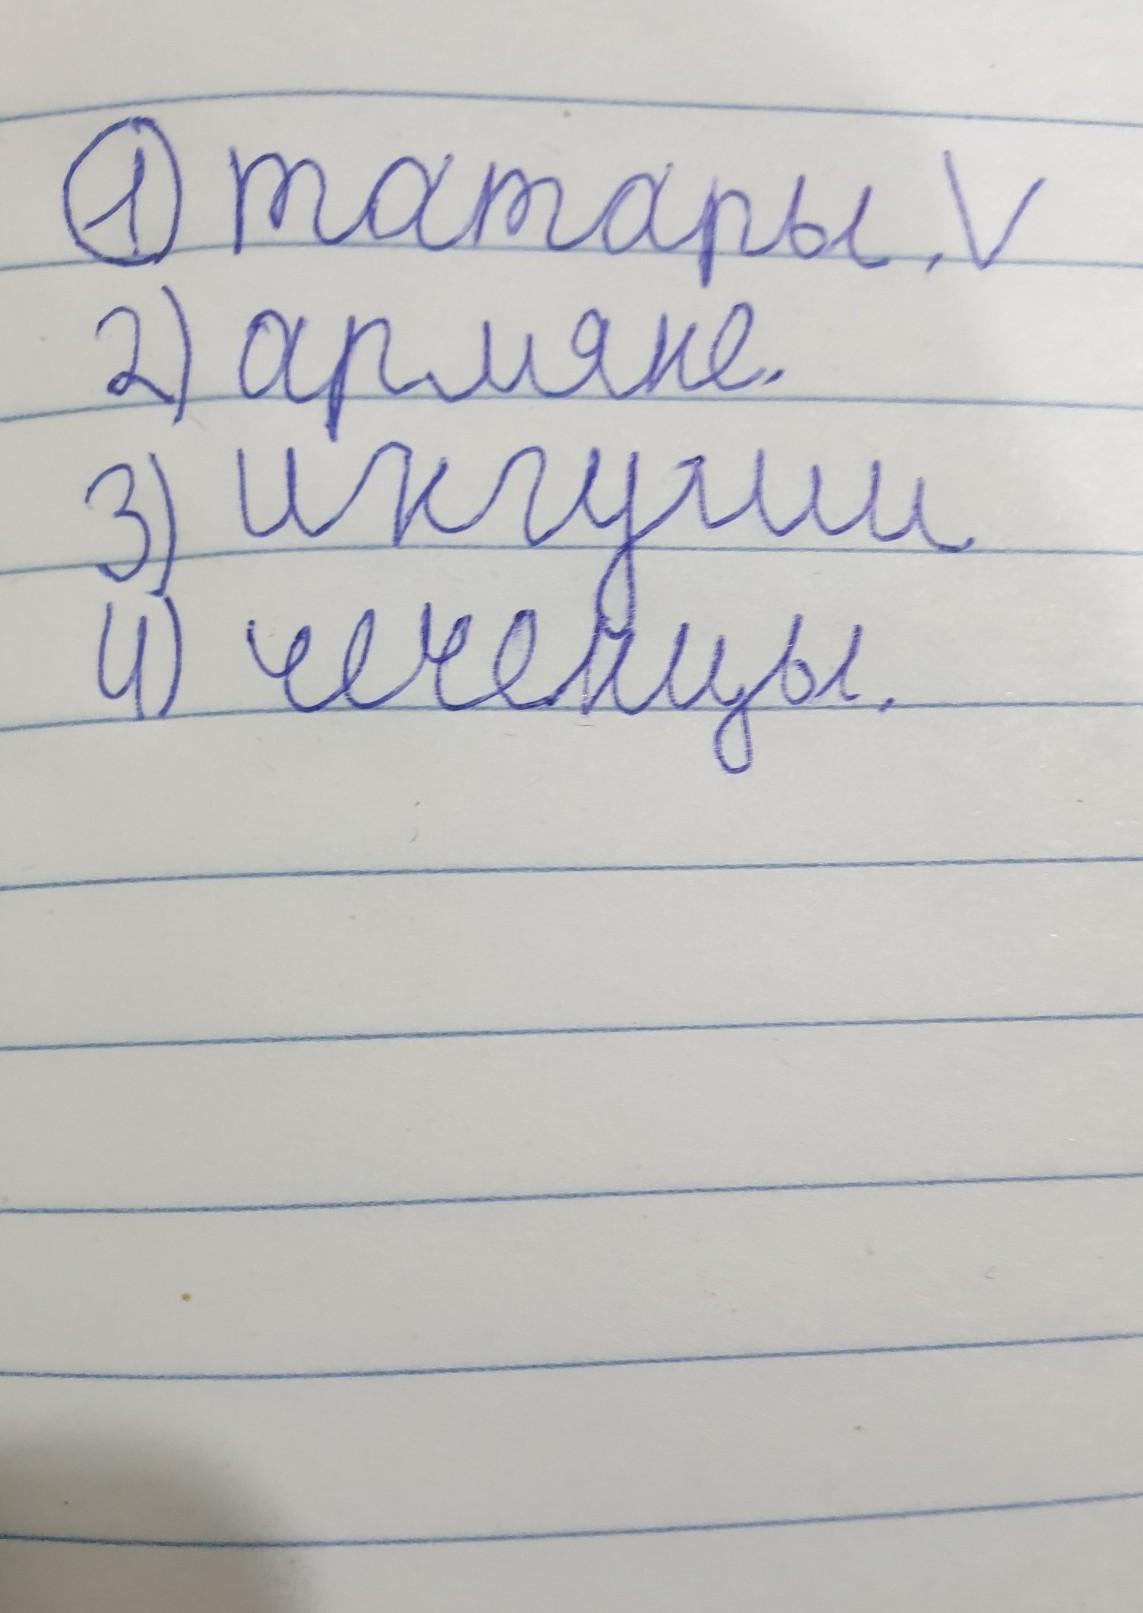 1) татары. V
2) армяне.
3) икгуши
4) чеченцы.